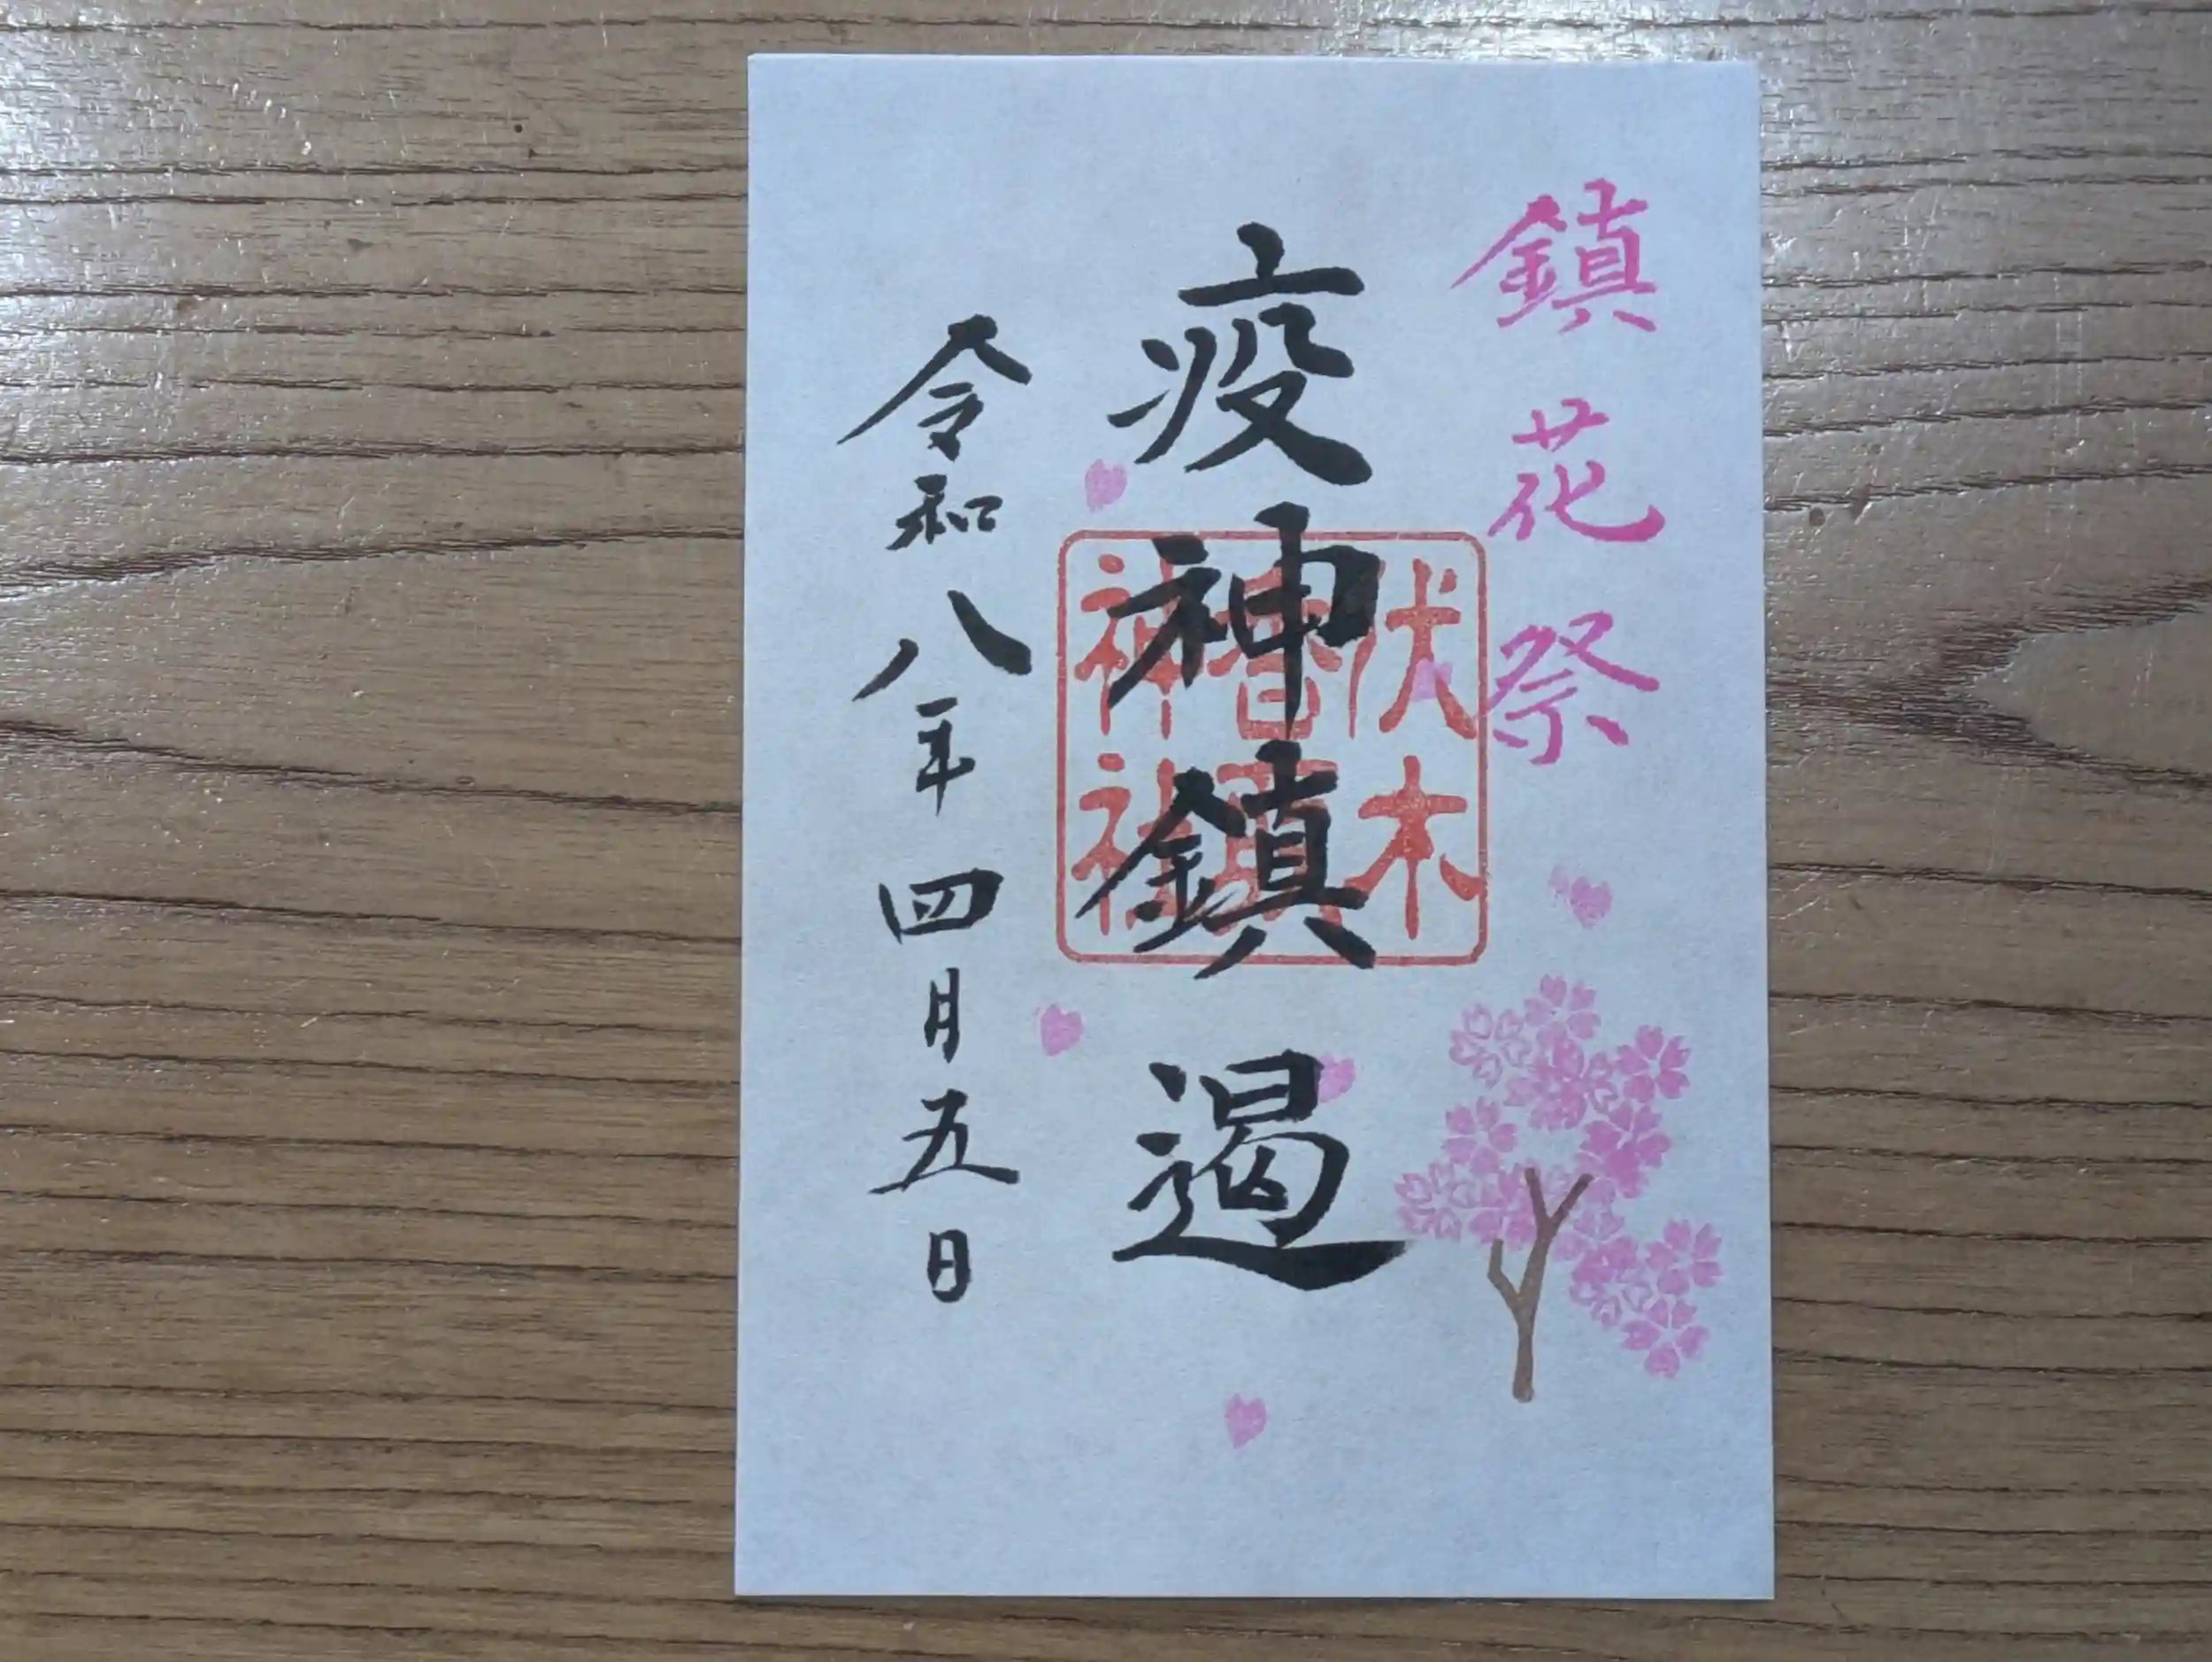 鎮花祭
疫神鎮遏
伏木
香具
神社
令和八年
四月五日